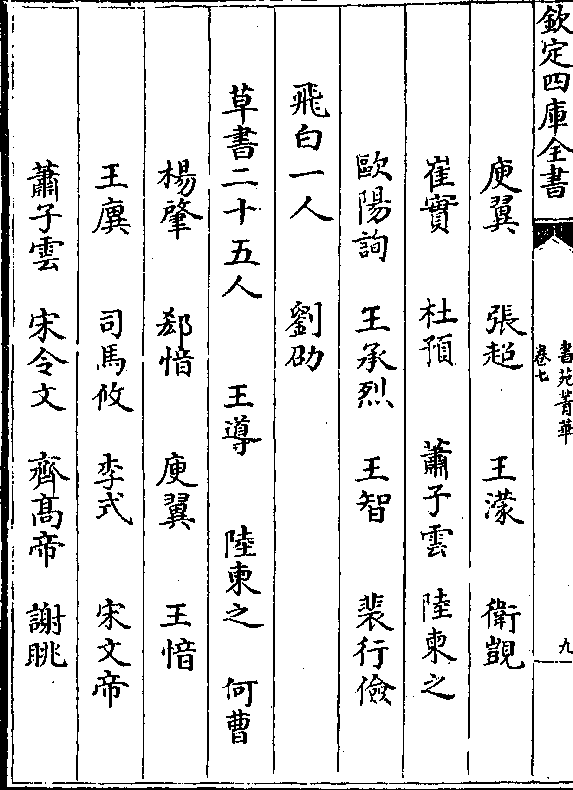 欽定四庫全書
書苑菁華
卷七
九
庾翼 張超 王濛 衛覬
崔寔 杜預 蕭子雲 陸柬之
歐陽詢 王承烈 王智 裴行儉
飛白一人 劉劭
草書二十五人 王導 陸柬之 何曹
楊肇 郄愔 庾翼 王愔
王廙 司馬攸 李式 宋文帝
蕭子雲 宋令文 齊高帝 謝眺